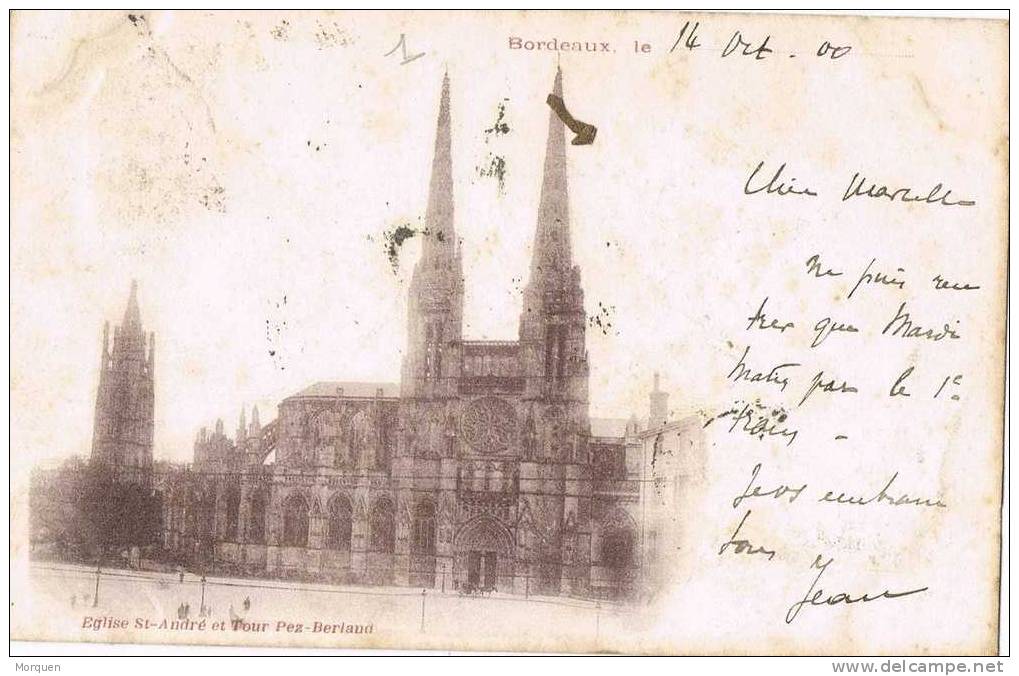 1
Bordeaux, le 14 Oct. 00
Chère Marcelle
Ne puis ren
trer que Mardi
Matin par le 1er
train.
Je vos embrasse
tous
Jean
Eglise St-André et Tour Pez-Berland
Morquen
www.delcampe.net